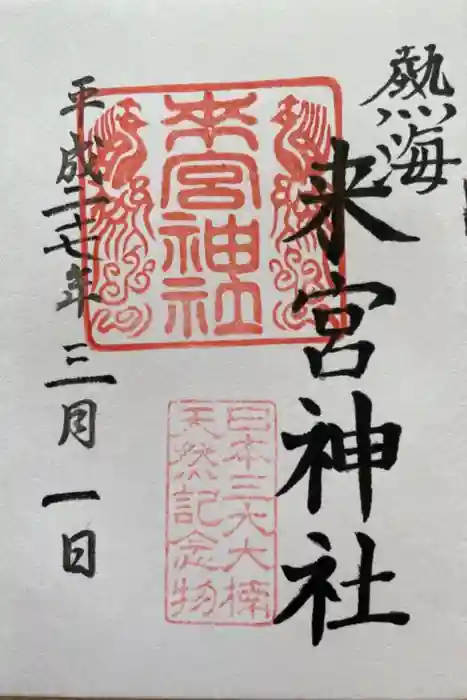 熱海
来宮神社
来宮神社
日本三大大楠
天然記念物
平成二十七年三月一日